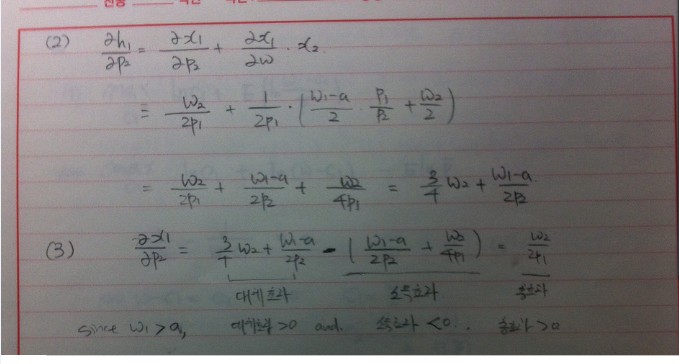 (2) ∂h₁/∂p₂ = ∂x₁/∂p₂ + ∂x₁/∂w · x₂
= w₂/2p₁ + 1/2p₁ · (w₁-a/2 · p₁/p₂ + w₂/2)
= w₂/2p₁ + w₁-a/2p₂ + w₂/4p₁ = 3/4 w₂ + w₁-a/2p₂
(3) ∂x₁/∂p₂ = 3/4 w₂ + w₁-a/2p₂ - (w₁-a/2p₂ + w₂/4p₁) = w₂/2p₁
대체효과 소득효과 총효과
since w₁ > a, 대체효과 >0 and. 소득효과 <0. 총효과 >0